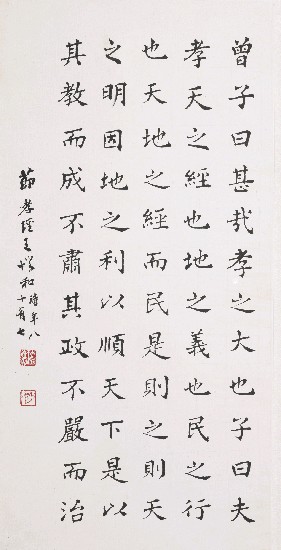 曾子曰甚哉孝之大也子曰夫
孝天之經也地之義也民之行
也天地之經而民是則之則天
之明因地之利以順天下是以
其教而成不肅其政不嚴而治
節孝經王 和時年八
十有七